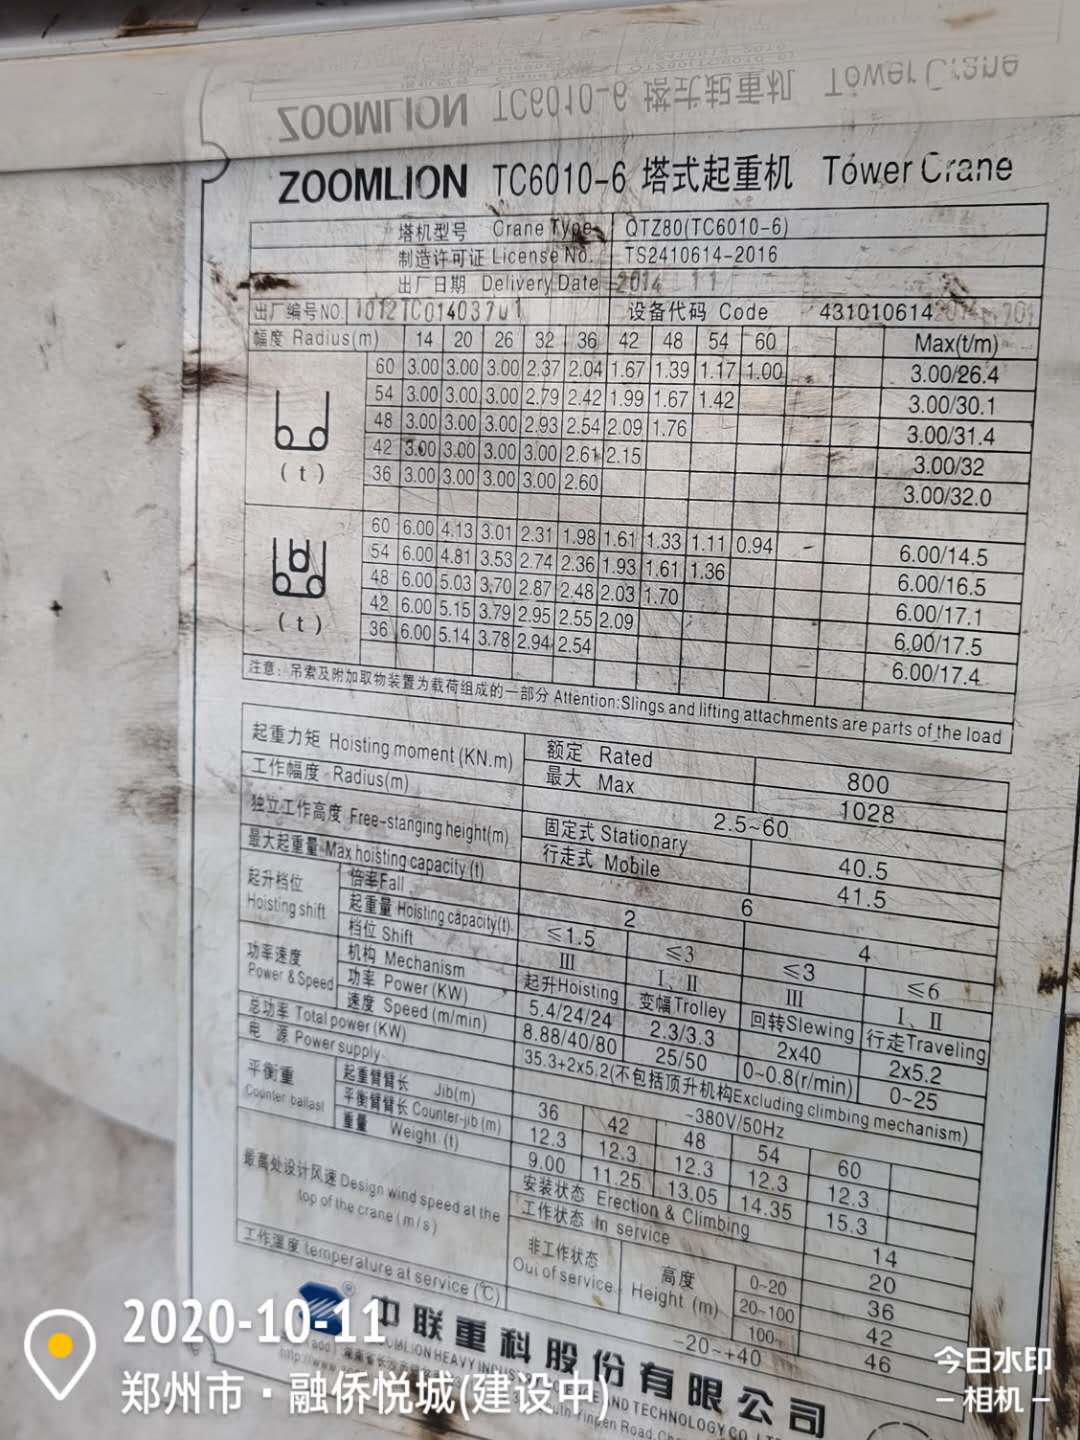 ZOOMLION TC6010-6 塔式起重机 Tower Crane
塔机型号 Crane Type QTZ80(TC6010-6)
制造许可证 License No. TS2410614-2016
出厂日期 Delivery Date 2014 11
出厂编号NO. 设备代码 Code 431010614
幅度 Radius(m) 14 20 26 32 36 42 48 54 60 Max(t/m)
60 3.00 3.00 3.00 2.37 2.04 1.67 1.39 1.17 1.00 3.00/26.4
54 3.00 3.00 3.00 2.79 2.42 1.99 1.67 1.42 3.00/30.1
48 3.00 3.00 3.00 2.93 2.54 2.09 1.76 3.00/31.4
42 3.00 3.00 3.00 3.00 2.61 2.15 3.00/32
36 3.00 3.00 3.00 3.00 2.60 3.00/32.0
(t)
60 6.00 4.13 3.01 2.31 1.98 1.61 1.33 1.11 0.94 6.00/14.5
54 6.00 4.81 3.53 2.74 2.36 1.93 1.61 1.36 6.00/16.5
48 6.00 5.03 3.70 2.87 2.48 2.03 1.70 6.00/17.1
42 6.00 5.15 3.79 2.95 2.55 2.09 6.00/17.5
36 6.00 5.14 3.78 2.94 2.54 6.00/17.4
(t)
注意：吊索及附加取物装置为载荷组成的一部分 Attention:Slings and lifting attachments are parts of the load
起重力矩 Hoisting moment (KN.m) 额定 Rated 800
最大 Max 1028
工作幅度 Radius(m) 2.5~60
独立工作高度 Free-stanging height(m) 固定式 Stationary 40.5
行走式 Mobile 41.5
最大起重量 Max hoisting capacity (t) 6
起升档位 Hoisting shift 倍率Fall 2 4
起重量 Hoisting capacity(t) ≤1.5 ≤3 ≤3 ≤6
档位 Shift Ⅲ Ⅰ、Ⅱ Ⅲ Ⅰ、Ⅱ
功率速度 Power & Speed 机构 Mechanism 起升Hoisting 变幅Trolley 回转Slewing 行走Traveling
功率 Power (KW) 5.4/24/24 2.3/3.3 2x40 2x5.2
速度 Speed (m/min) 8.88/40/80 25/50 0~0.8(r/min) 0~25
总功率 Total power(KW) 35.3+2x5.2(不包括顶升机构Excluding climbing mechanism)
电 源 Power supply ~380V/50Hz
平衡重 Counter ballast 起重臂臂长 Jib(m) 36 42 48 54 60
平衡臂臂长 Counter-jib (m) 12.3 12.3 12.3 12.3 12.3
重量 Weight (t) 9.00 11.25 13.05 14.35 15.3
最高处设计风速 Design wind speed at the top of the crane (m/s) 安装状态 Erection & Climbing 14
工作状态 In service 20
非工作状态 Oui of service 高度 Height (m) 0~20 36
20~100 42
100~ 46
工作温度 temperature at service (℃) -20~+40
中联重科股份有限公司
2020-10-11
郑州市·融侨悦城(建设中)
今日水印
相机